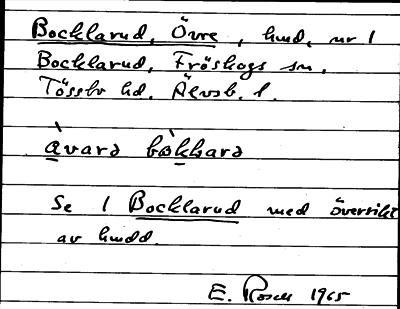 Bocklarud, Övre, hmd, nr 1
Bocklarud, Fröskogs sn,
Tössbo hd. Älvsb. l.
àvarə bòkkarə
Se 1 Bocklarud med översikt
av hmdd.
E. Rosell 1965